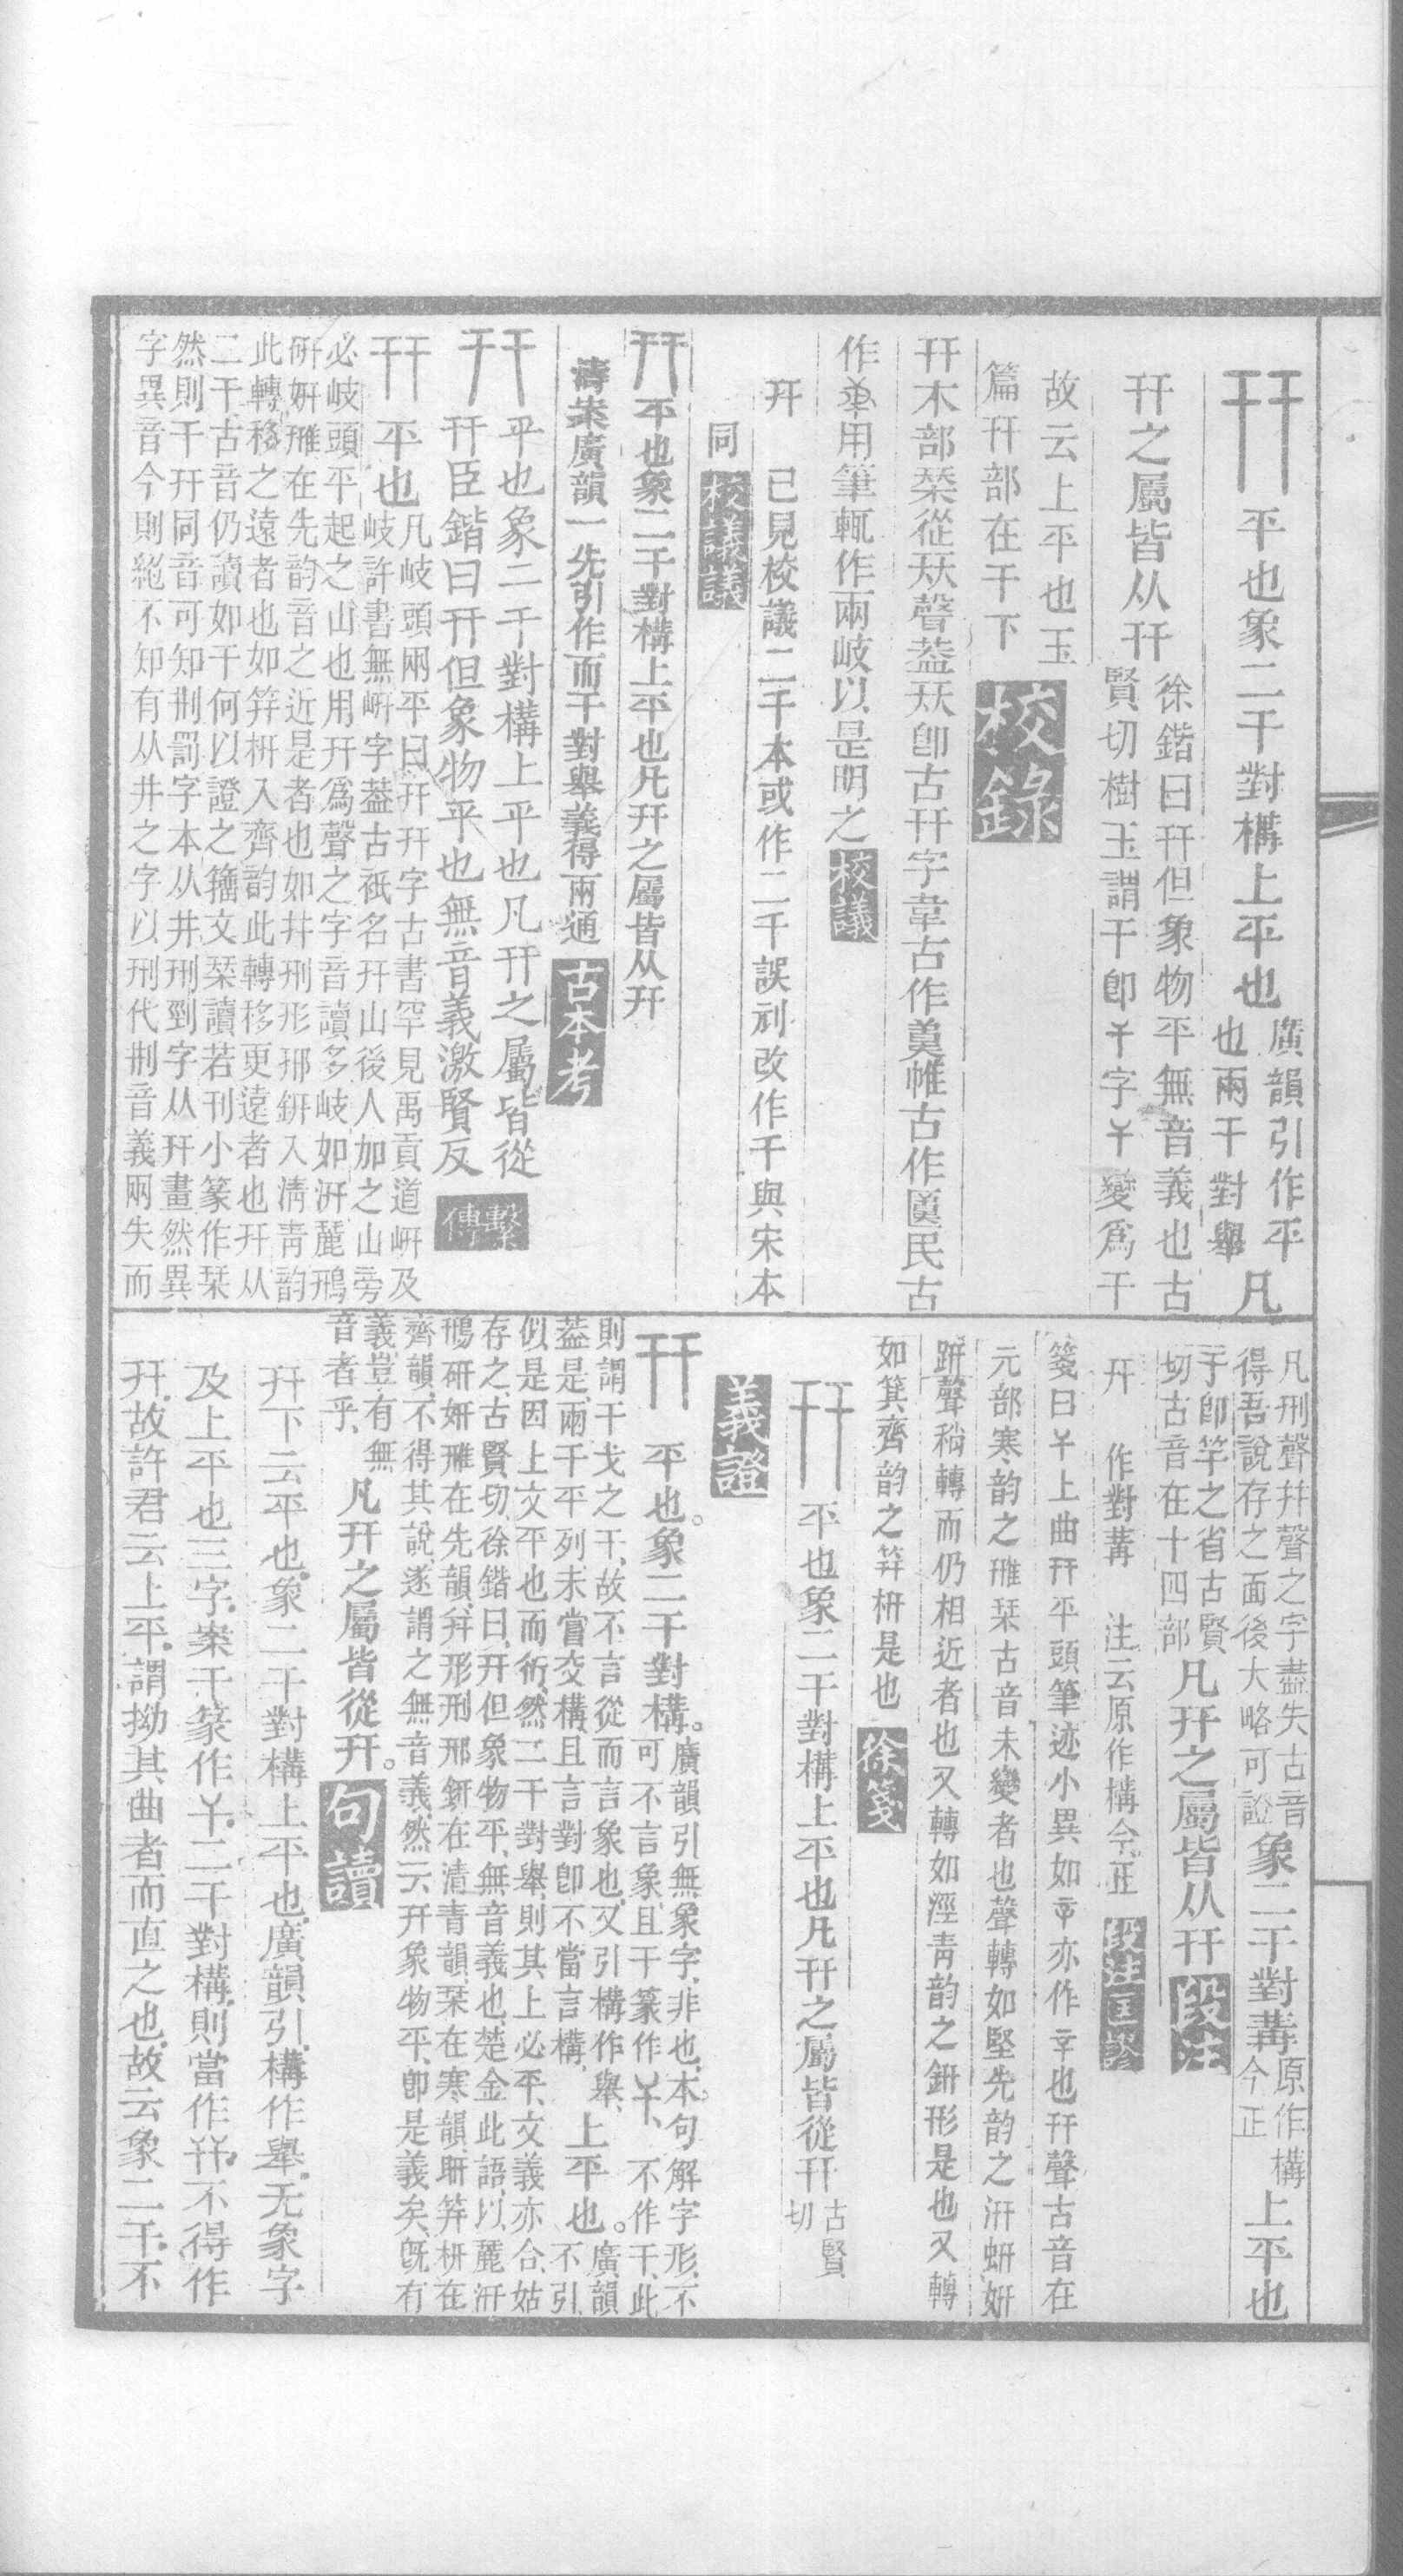 幵 平也象二干對構上平也 廣韻引作平也兩干對舉 凡
幵之屬皆从幵 徐鍇曰幵但象物平無音義也古賢切樹玉謂干卽𢆉字𢆉變爲干
故云上平也玉
篇幵部在干下 校錄
幵木部栞從㼱聲葢㼱卽古幵字韋古作奠帷古作匴民古
作用筆輒作兩岐以是明之 校議
幵 已見校議二干本或作二千誤刓改作干與宋本
同 校議議
幵 平也象二干對構上平也凡幵之屬皆从幵
濤案廣韻一先引作而干對舉義得兩通 古本考
幵 平也象二干對構上平也凡幵之屬皆從
幵臣鍇曰幵但象物平也無音義激賢反 繫傳
幵 平也 凡岐頭兩平曰幵幵字古書罕見禹貢道岍及
岐許書無岍字葢古祇名幵山後人加之山旁
必岐頭平起之山也用幵爲聲之字音讀多岐如汧麗鳽
硏姸雃在先韵音之近是者也如幷刑形邢鈃入清青韵
此轉移之遠者也如笄枅入齊韵此轉移更遠者也幵从
二干古音仍讀如干何以證之籒文栞讀若刊小篆作栞
然則干幵同音可知㓝罰字本从井刑剄字从幵畫然異
字異音今則絕不知有从井之字以刑代㓝音義兩失而
凡刑聲幷聲之字盡失古音
得吾說存之面後大略可證 象二干對冓 原作構今正 上平也
于卽竿之省古賢
切古音在十四部 凡幵之屬皆从幵 段注
幵 作對冓 注云原作構今正 段注匡謬
箋曰𢆉上曲幵平頭筆迹小異如䇂亦作辛也幵聲古音在
元部寒韵之雃栞古音未變者也聲轉如堅先韵之汧蚈姸
趼聲稍轉而仍相近者也又轉如淫靑韵之鈃形是也又轉
如箕齊韵之笄枅是也 徐箋
幵 平也象二干對構上平也凡幵之屬皆從幵 古賢切
義證
幵 平也。象二干對構。 廣韻引無象字、非也、本句解字形、不
可不言象、且干篆作𢆉、不作干、此
則謂干戈之干、故不言從而言象也、又引構作舉、 上平也。 廣韻
不引
葢是、兩干平列未嘗交構、且言對卽不當言構、
似是因上文平也而衍、然二干對舉、則其上必平、文義亦合、姑
存之、古賢切、徐鍇曰、幵但象物平、無音義也楚金此語、以麗汧
鳽硏姸雃在先韻、幷形刑邢鈃在清青韻、栞在寒韻、䀘笄枅在
齊韻、不得其說、遂謂之無音義、然云幵象物平、卽是義矣、旣有
義、豈有無
音者乎、 凡幵之屬皆從幵。 句讀
幵下云平也。象二干對構上平也。廣韻引。構作舉。无象字
及上平也三字。案干篆作𢆉。二干對構。則當作𢆉𢆉。不得作
幵。故許君云上平。謂拗其曲者而直之也。故云象二干。不